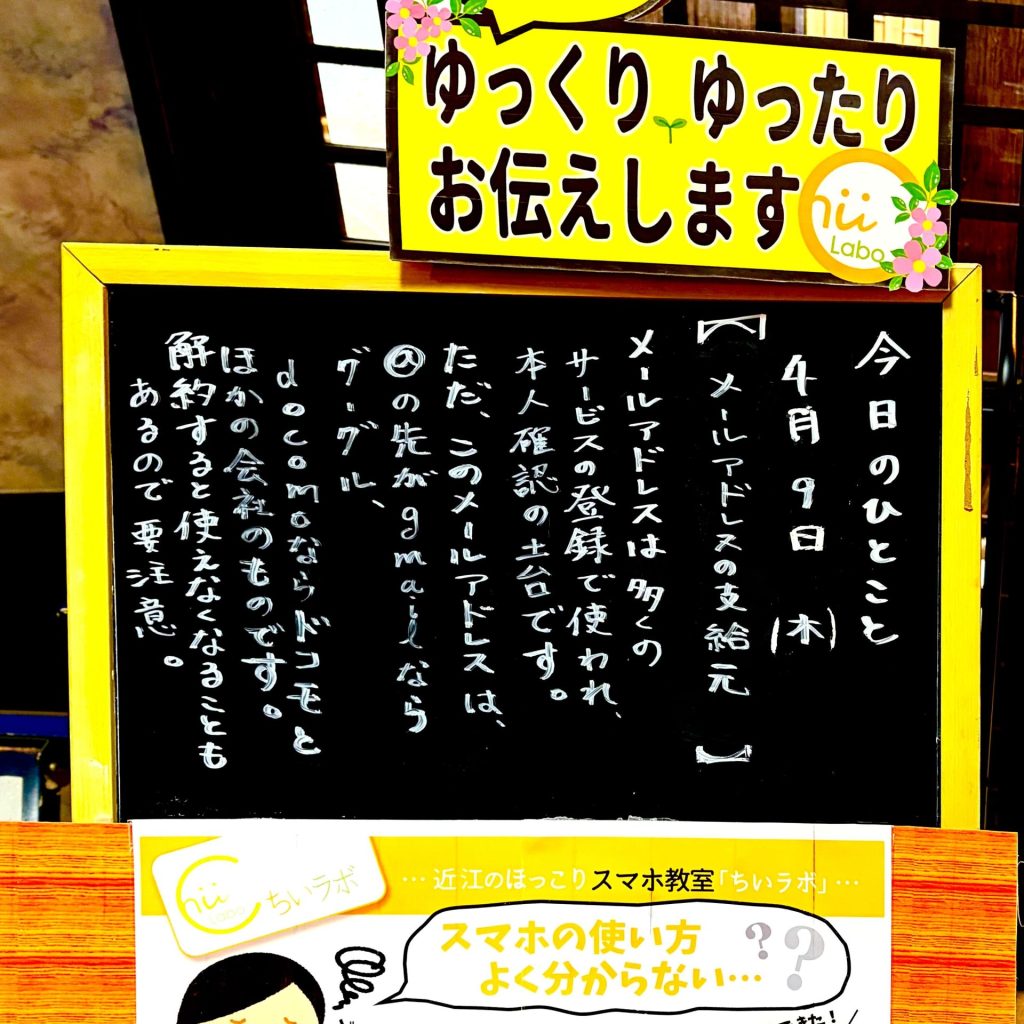 ゆっくり ゆったり
お伝えします
hii
Labo
今日のひとこと
4月9日(木)
【メールアドレスの支給元】
メールアドレスは多くの
サービスの登録で使われ、
本人確認の土台です。
ただ、このメールアドレスは、
@の先がgmailなら
グーグル、
docomoならドコモと
ほかの会社のものです。
解約すると使えなくなることも
あるので要注意。
hii
Labo
ちいラボ
…近江のほっこりスマホ教室「ちいラボ」…
スマホの使い方
よく分からない…??